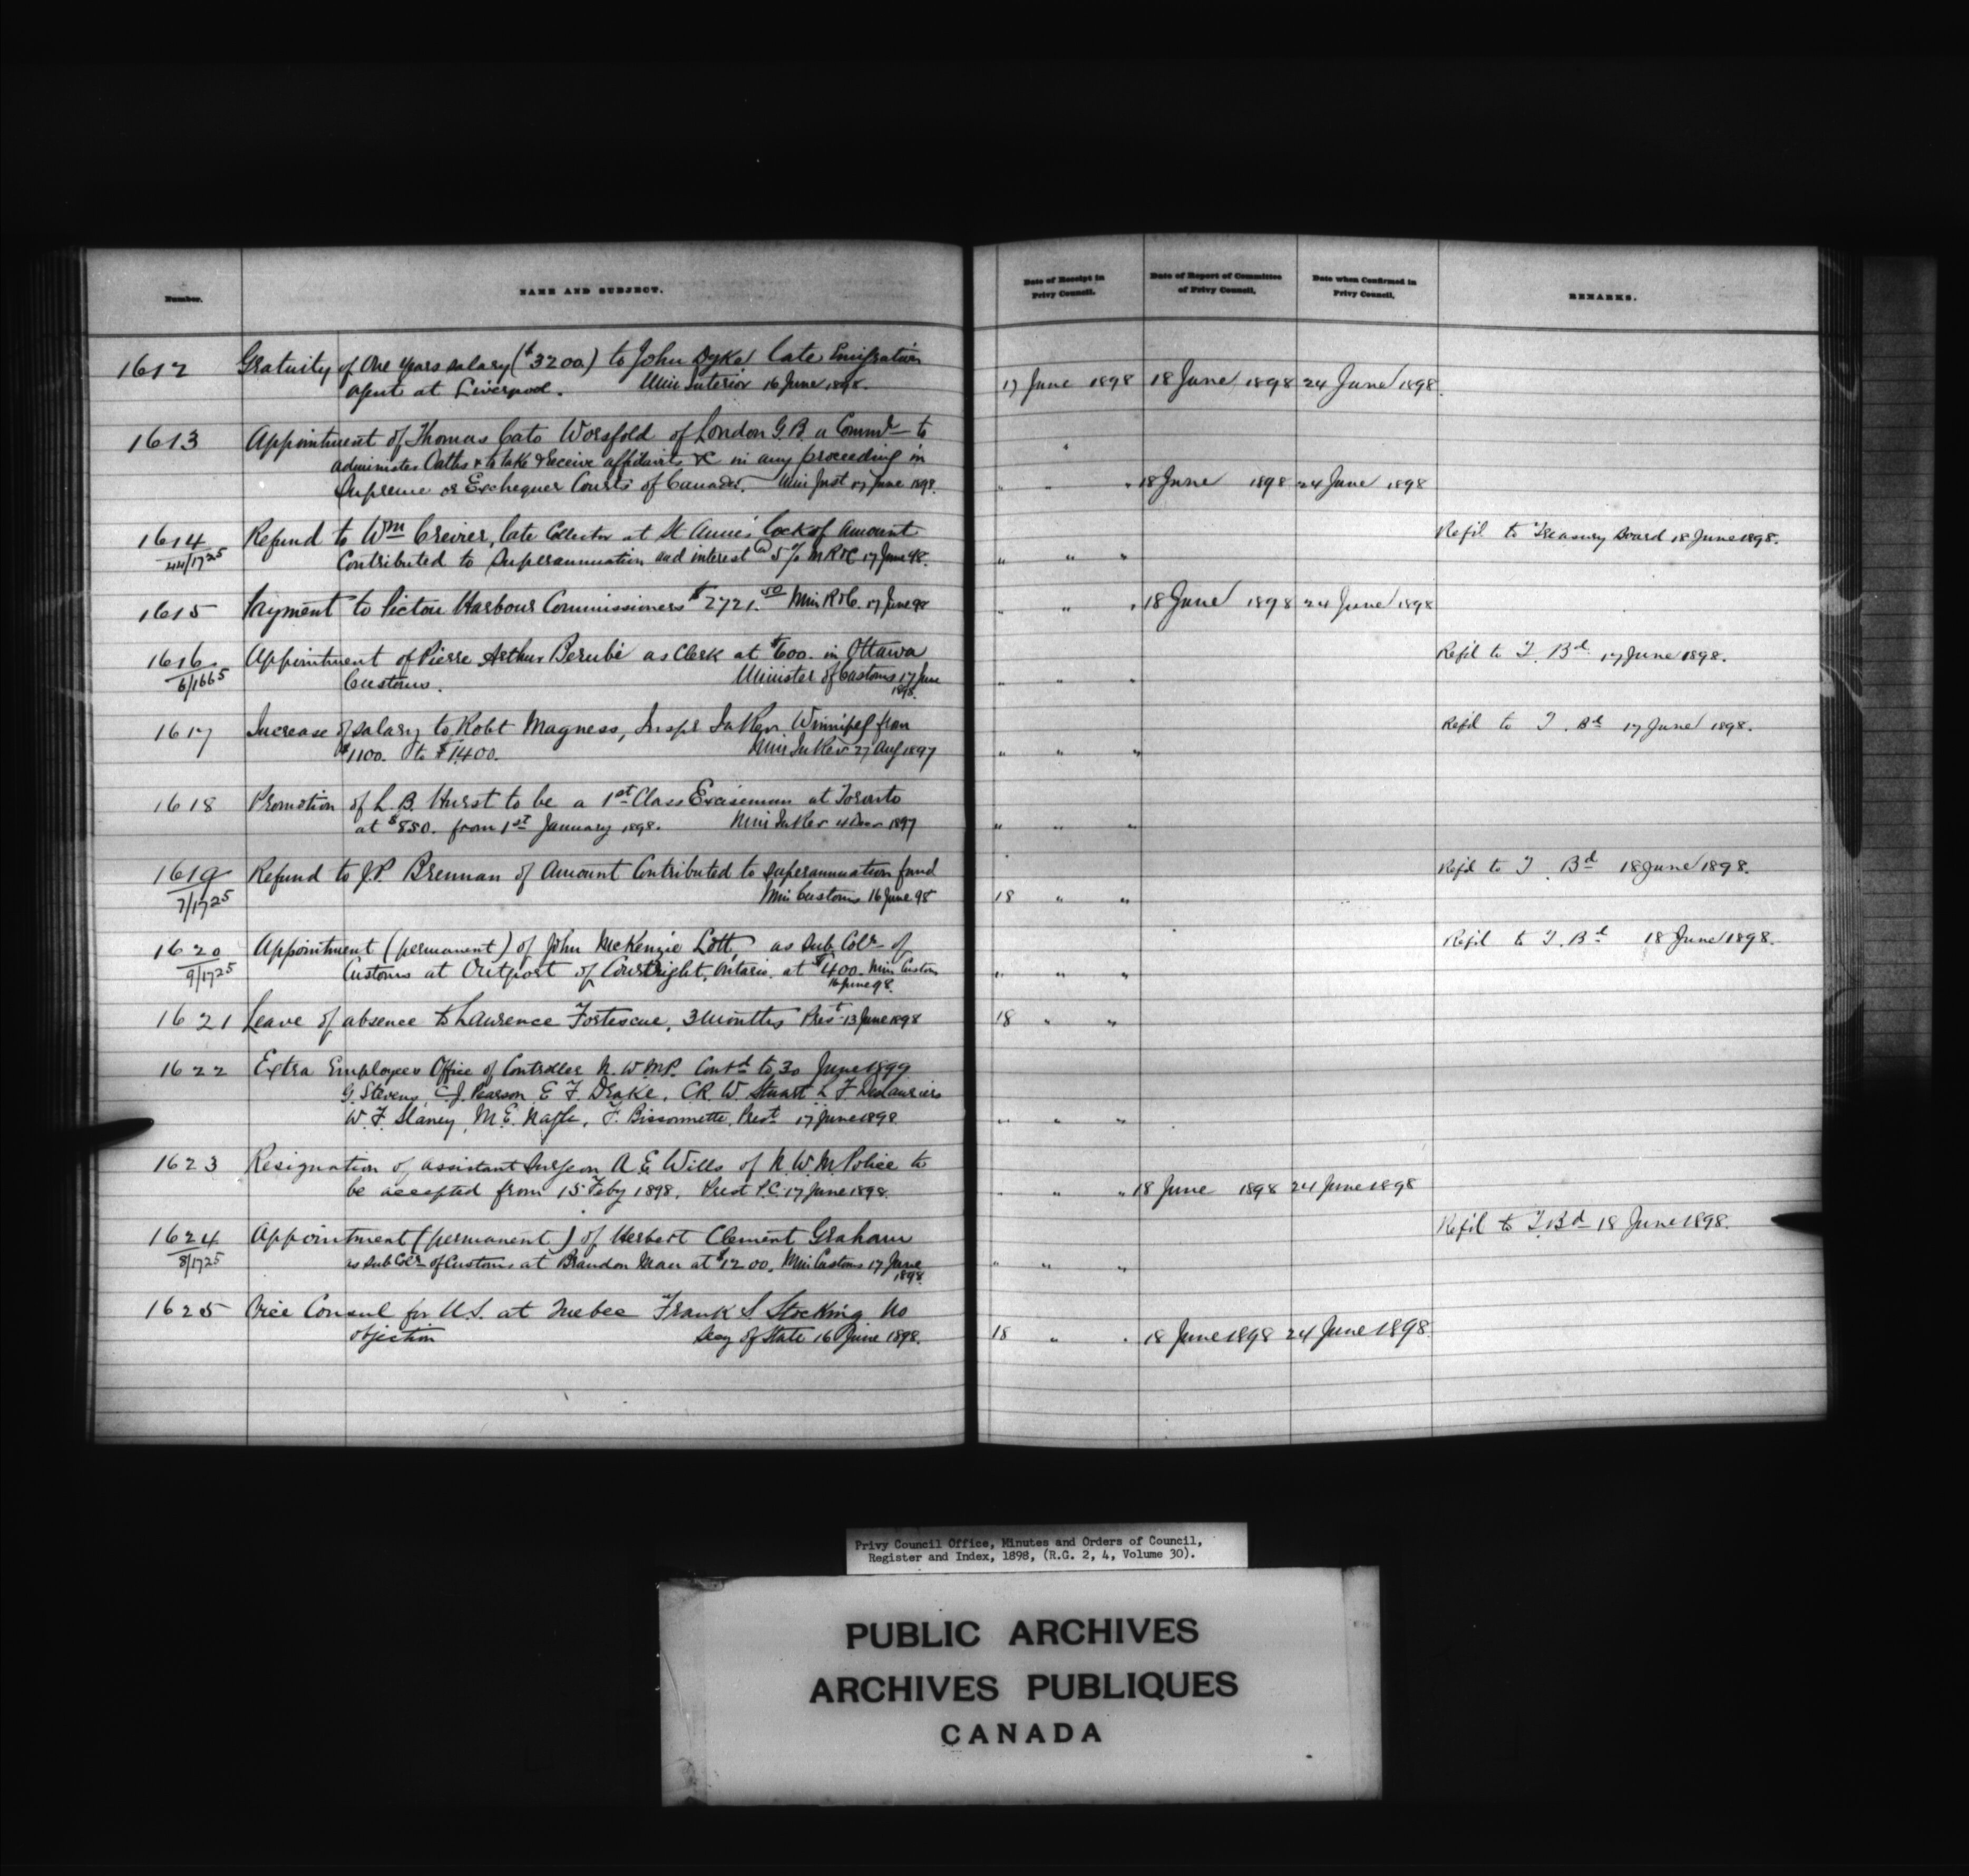 Number.
NAME AND SUBJECT.
Date of Receipt in
Privy Council.
Date of Report of Committee
of Privy Council.
Date when Confirmed in
Privy Council.
REMARKS.
1612 Gratuity of One years salary ($3200.) to John Dyke late Emigration
agent at Liverpool. Min Interior 16 June 1898. 17 June 1898 18 June 1898 24 June 1898.
1613 Appointment of Thomas Cato Worsfold of London G.B. a Commr to
administer Oaths & to take & receive affidavits &c in any proceeding in
Supreme or Exchequer Courts of Canada. Min Just 17 June 1898. " " " 18 June 1898 24 June 1898
1614 Refund to Wm Crevier, late Collector at St Anne's lock of Amount Refd. to Treasury Board 18 June 1898.
44/1725 Contributed to Superannuation and interest @ 5% M R & C 17 June 98. " " "
1615 Payment to Pictou Harbour Commissioners $2721.50 Min R & C. 17 June 98 " " " 18 June 1898 24 June 1898
1616 Appointment of Pierre Arthur Berubé as Clerk at $600. in Ottawa Refd to T. Bd. 17 June 1898.
6/1665 Customs. Minister of Customs 17 June
1898. " " "
1617 Increase of salary to Robt Magness, Inspr In Rev. Winnipeg from Refd to T. Bd 17 June 1898.
$1100. to $1400. Min In Rev 27 Aug 1897 " " "
1618 Promotion of L. B. Hurst to be a 1st Class Exciseman at Toronto
at $850. from 1st January 1898. Min In Rev 4 Decr 1897 " " "
1619 Refund to J.P. Brennan of Amount Contributed to superannuation fund Refd to T. Bd 18 June 1898.
7/1725 Min Customs 16 June 98 18 " "
1620 Appointment (permanent) of John McKenzie Lott, as Sub Colr of Refd to T. Bd 18 June 1898.
9/1725 Customs at Outport of Courtright, Ontario. at $400. Min Customs
16 June 98. " " "
1621 Leave of absence to Lawrence Fortescue, 3 months Prest 13 June 1898 18 " "
1622 Extra Employees Office of Controller N. W. M.P. Contd to 30 June 1899
G. Stevens, C. J. Pearson, E F. Drake. C.R. W. Stuart L F Deslauriers
W. F. Slaney, M. E. Nagle, F. Bissonnette. Prest 17 June 1898 " " "
1623 Resignation of assistant Surgeon A. E. Wills of N. W. M. Police to
be accepted from 15 Feby 1898. Prest P.C. 17 June 1898. " " " 18 June 1898 24 June 1898
1624 Appointment (permanent) of Herbert Clement Graham Refd to T. Bd 18 June 1898.
8/1725 as Sub Colr of Customs at Brandon Man at $1200. Min Customs 17 June
1898. " " "
1625 Vice Consul for U.S. at Quebec Frank S. Stocking No
objection Secy of State 16 June 1898. 18 " " 18 June 1898 24 June 1898.
Privy Council Office, Minutes and Orders of Council,
Register and Index, 1898, (R.G. 2, 4, Volume 30).
PUBLIC ARCHIVES
ARCHIVES PUBLIQUES
CANADA